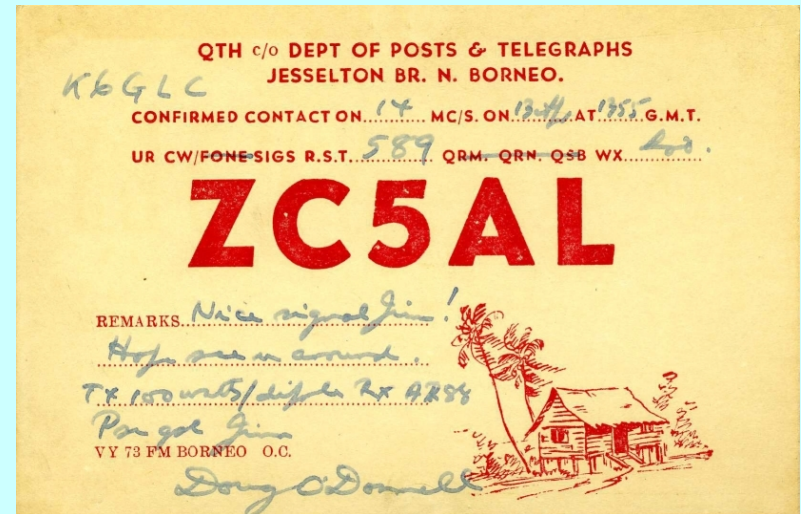 QTH c/o DEPT OF POSTS & TELEGRAPHS
JESSELTON BR. N. BORNEO.
K6GLC
CONFIRMED CONTACT ON 14 MC/S. ON AT 1355 G.M.T.
UR CW/FONE SIGS R.S.T. 589 QRM. QRN. QSB WX
ZC5AL
REMARKS Nice signal Jim!
Hope see u around.
TX 100 watts/dipole RX AR88
Pse qsl Jim
VY 73 FM BORNEO O.C.
Doug O'Donnell